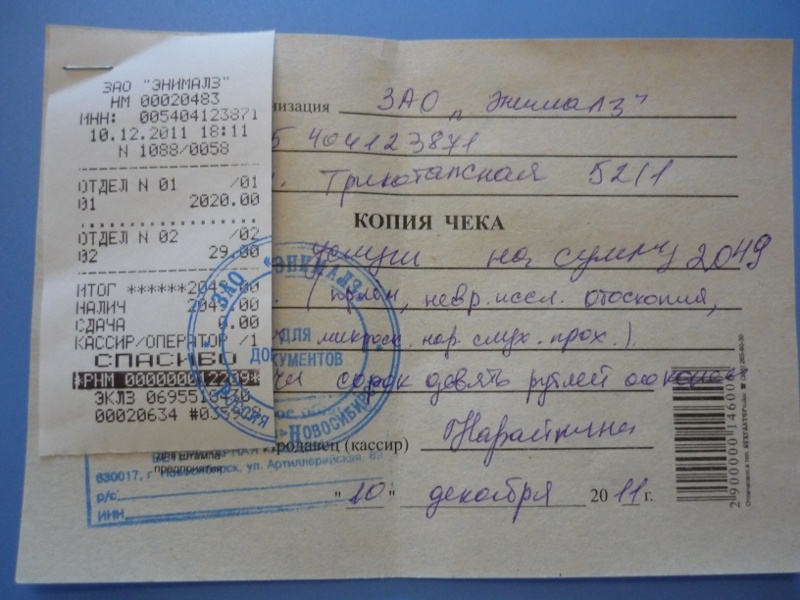 ЗАО "ЭНИМАЛЗ"
НМ 00020483
ИНН: 005404123871
10.12.2011 18:11
N 1088/0058
ОТДЕЛ N 01 /01
01 2020.00
ОТДЕЛ N 02 /02
02 29.00
ИТОГ ******2049.00
НАЛИЧ 2049.00
СДАЧА 0.00
КАССИР/ОПЕРАТОР /1
СПАСИБО
*РНМ 000000012209*
ЭКЛЗ 0695510430
00020634
низация ЗАО "Энималз"
5404123871
Трикотажная 52/1
КОПИЯ ЧЕКА
Услуги на сумму 2049
(прием, невр. иссл. отоскопия,
микроск. нар. слух. прох.)
сорок девять рублей 00 копеек
родавец (кассир)
"10" декабря 2011 г.
ЗАО "ЭНИМАЛЗ"
ДЛЯ
ДОКУМЕНТОВ
НОВОСИБИРСК
для штампа
предприятия
630017, г. Новосибирск, ул. Артиллерийская, 89
р/с
ИНН